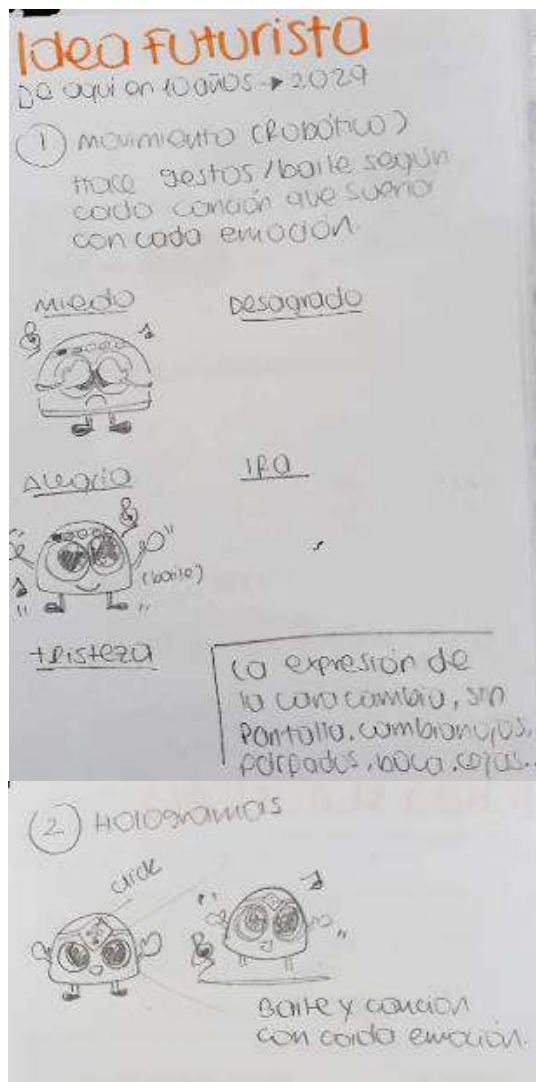 Idea Futurista
De aquí en 10 años → 2029
1 Movimiento (Robótico)
Hace gestos/baile según
cada canción que suena
con cada emoción.
Miedo
Desagrado
Alegría
Ira
(baile)
tristeza
La expresión de
la cara cambia, sin
Pantalla. cambian ojos,
párpados, boca, cejas...
2 Hologramas
Baile y canción
con cada emoción.